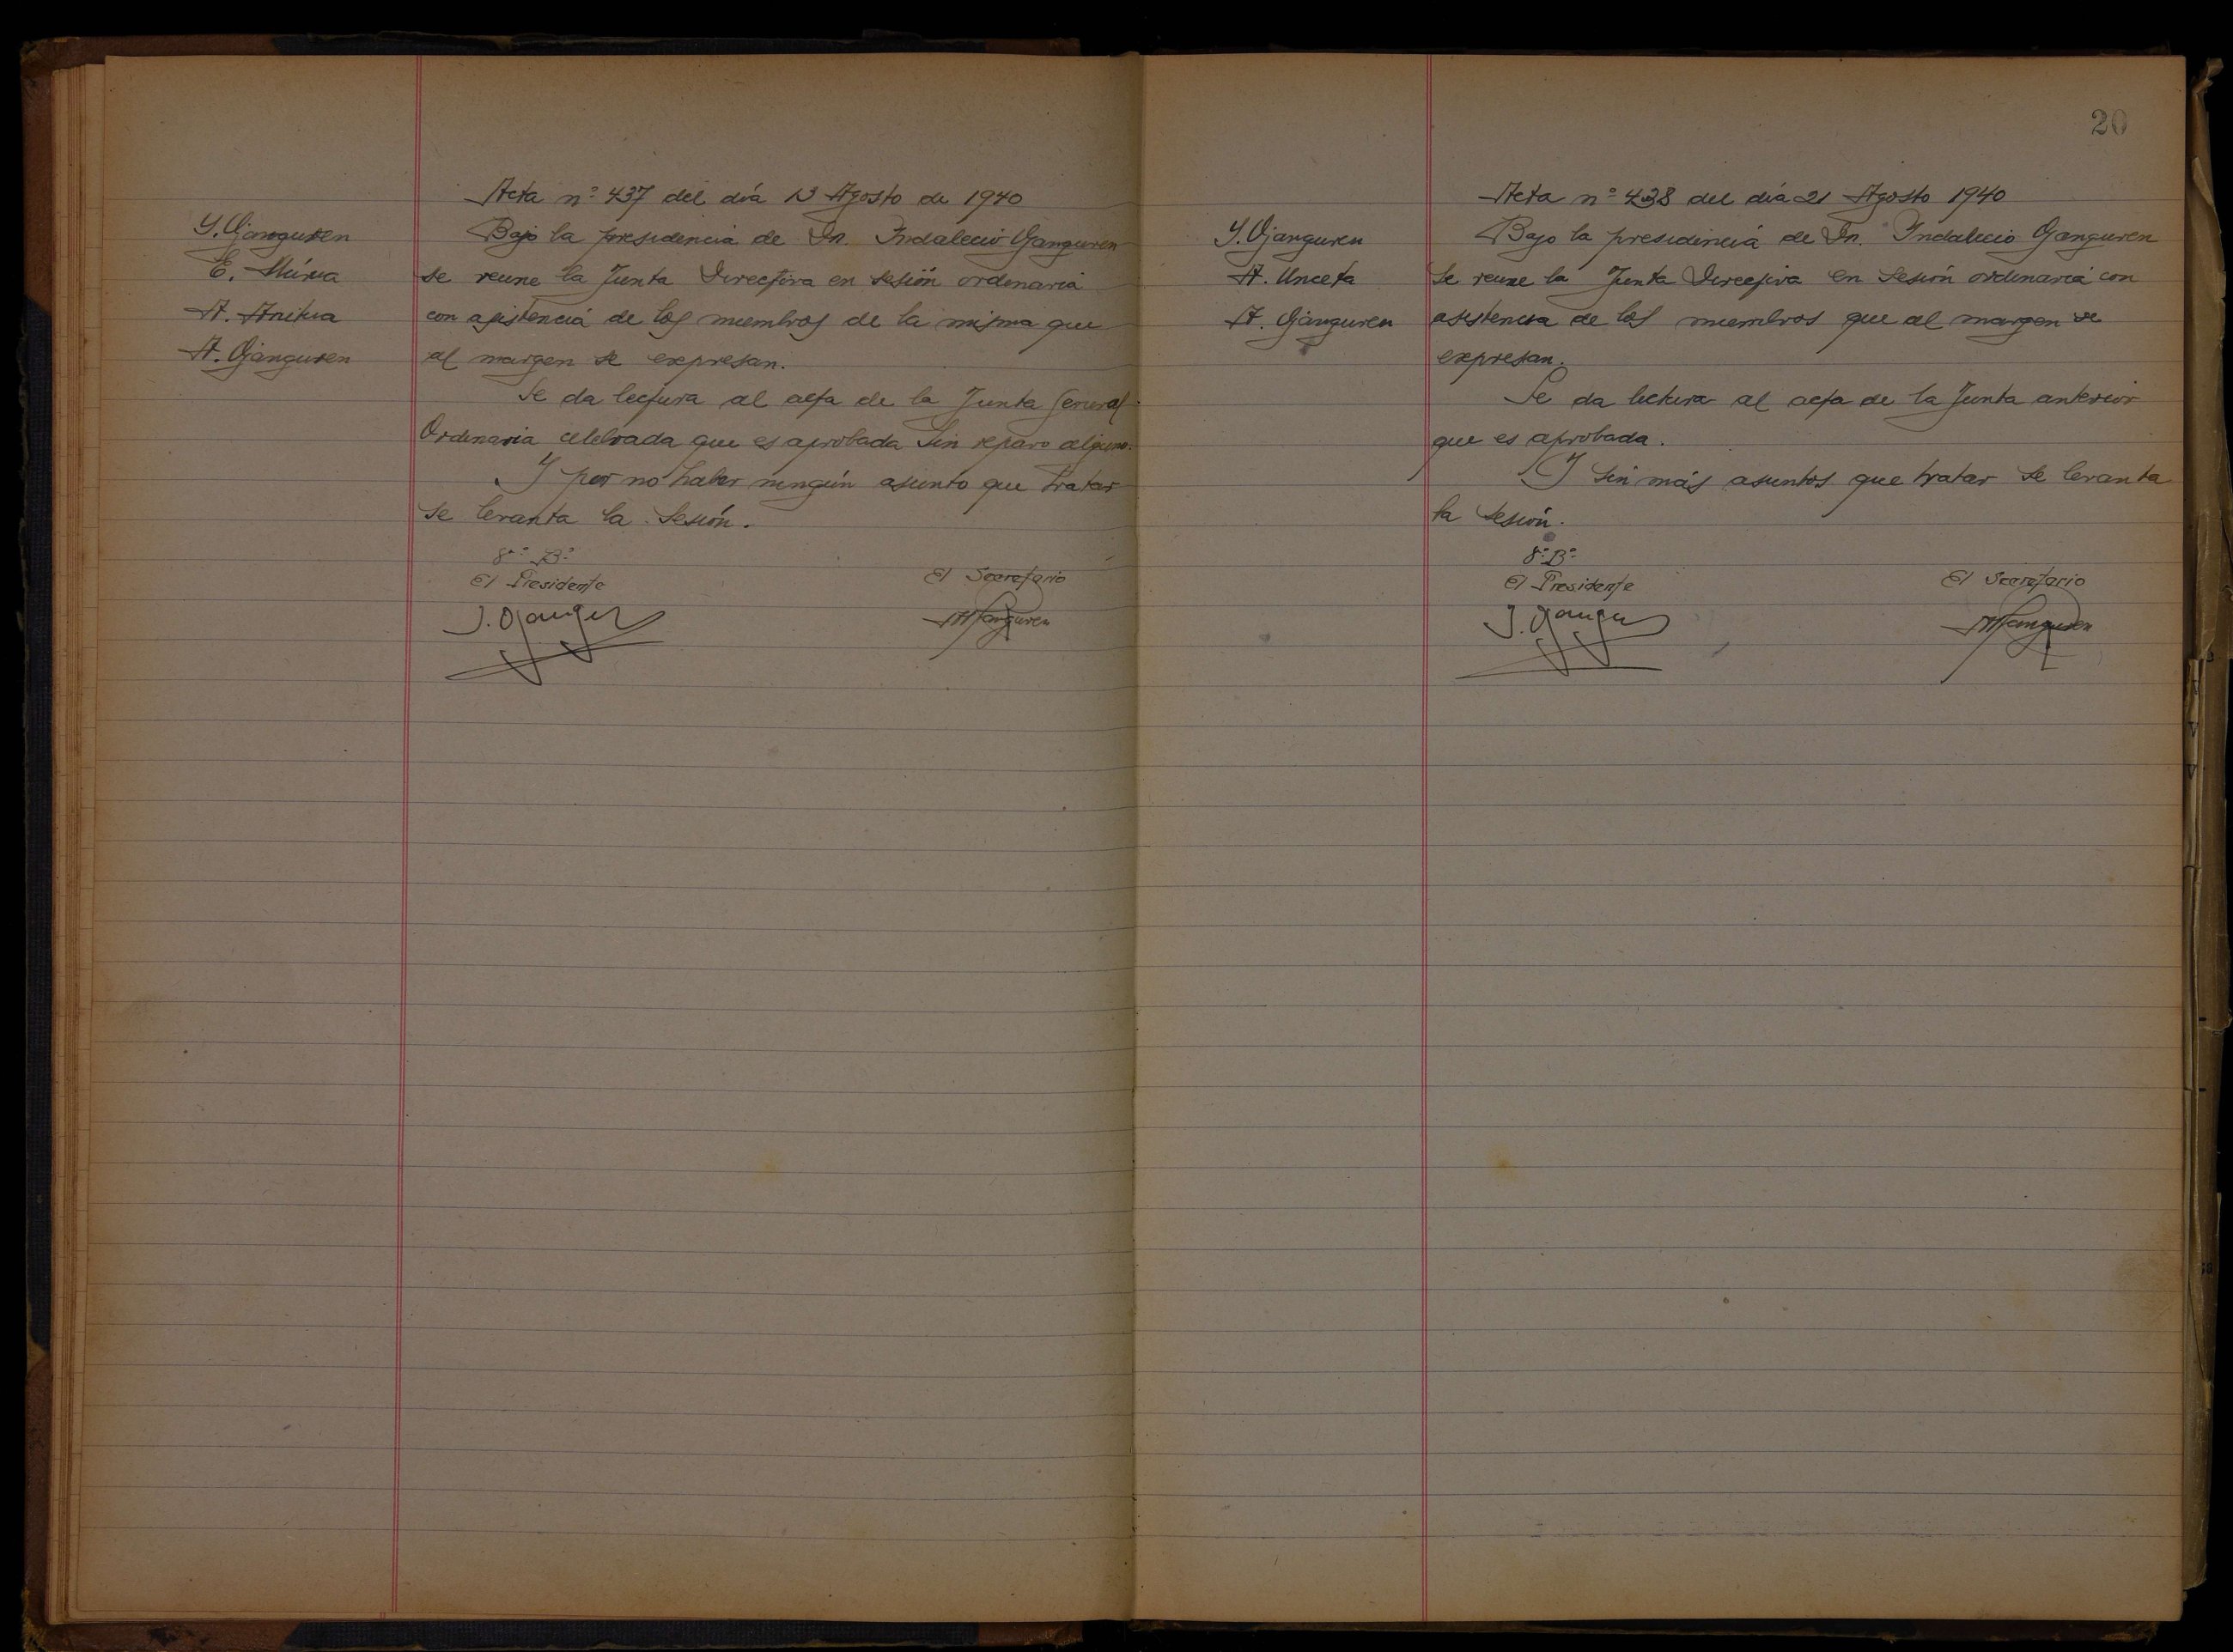 Acta nº 437 del día 13 Agosto de 1940
Y. Ojanguren
E. Múxua
A. Anitua
A. Ojanguren
Bajo la presidencia de Dn. Indalecio Ojanguren
se reune la Junta Directiva en sesión ordinaria
con asistencia de los miembros de la misma que
al margen se expresan.
Se da lectura al acta de la Junta General
Ordinaria celebrada que es aprobada sin reparo alguno.
Y por no haber ningún asunto que tratar
se levanta la sesión.
Vº Bº
El Presidente
El Secretario
J. Ojanguren
A. Ojanguren
20
Acta nº 438 del día 21 Agosto 1940
Y. Ojanguren
A. Unceta
A. Ojanguren
Bajo la presidencia de Dn. Indalecio Ojanguren
se reune la Junta Directiva en sesión ordinaria con
asistencia de los miembros que al margen se
expresan.
Se da lectura al acta de la Junta anterior
que es aprobada.
Y sin más asuntos que tratar se levanta
la sesión.
Vº Bº
El Presidente
El Secretario
J. Ojanguren
A. Ojanguren